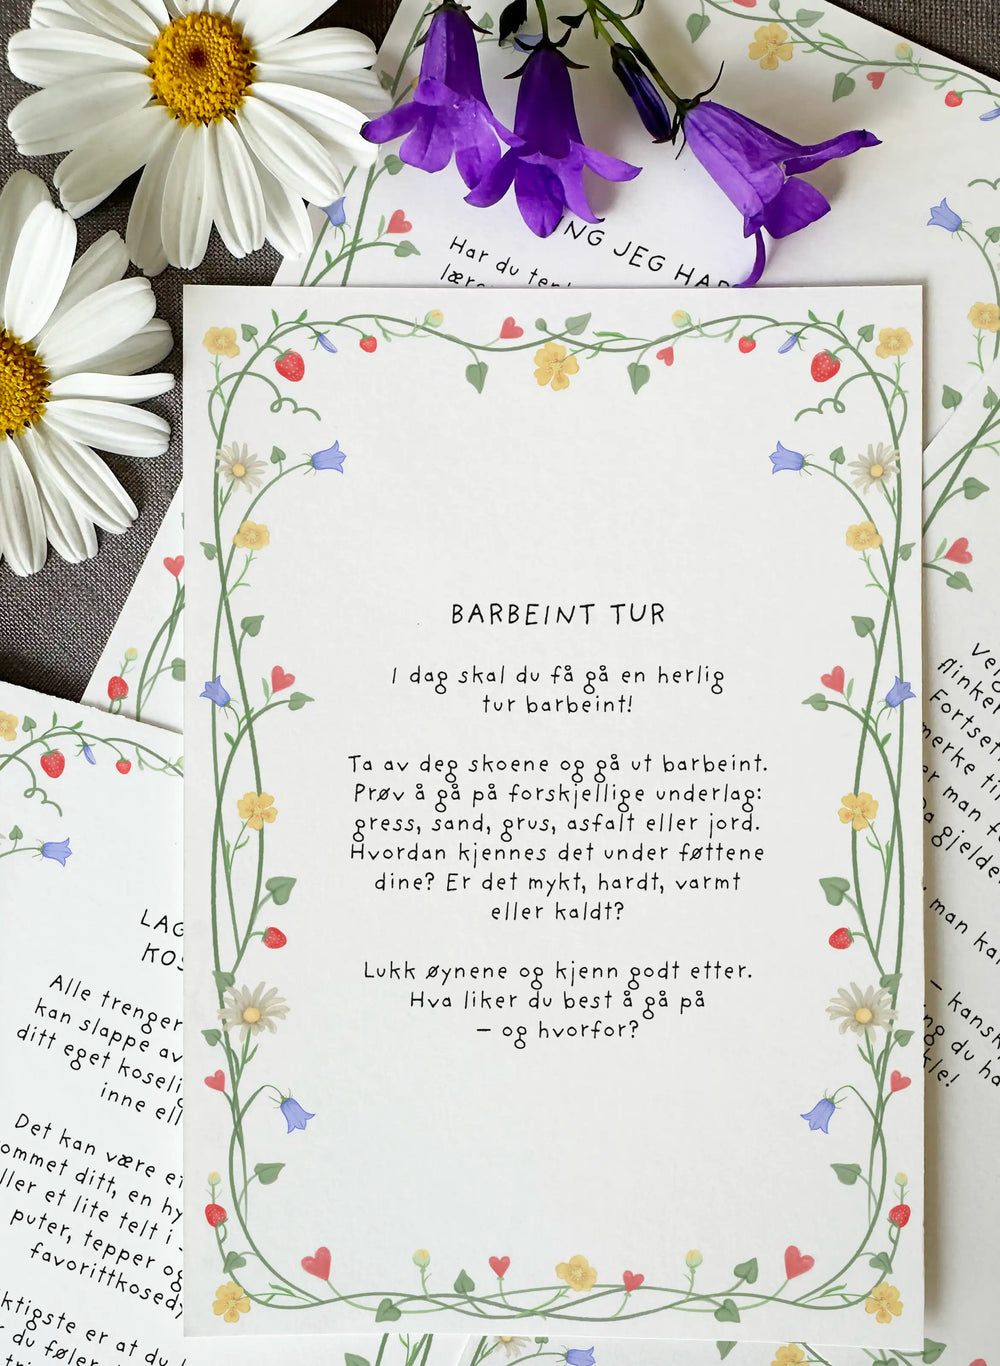 NG JEG HAR
Har du
BARBEINT TUR
I dag skal du få gå en herlig
tur barbeint!
Ta av deg skoene og gå ut barbeint.
Prøv å gå på forskjellige underlag:
gress, sand, grus, asfalt eller jord.
Hvordan kjennes det under føttene
dine? Er det mykt, hardt, varmt
eller kaldt?
Lukk øynene og kjenn godt etter.
Hva liker du best å gå på
– og hvorfor?
LAG
KOS
Alle trenger
kan slappe av
ditt eget koseli
inne ell
Det kan være et
ommet ditt, en hy
ller et lite telt i
puter, tepper og
favorittkosedy
ktigste er at du
du føler
flinke
Fortset
merke ti
er man f
gjelde
man kan
– kansk
ng du ha
kle!